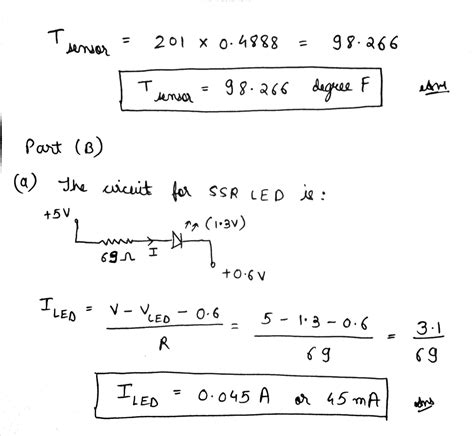 T sensor = 201 x 0.4888 = 98.266
T sensor = 98.266 degree F Ans
Part (B)
(a) The circuit for SSR LED is :
+5V
(1.3V)
69Ω I
+0.6V
I LED = V - V LED - 0.6 / R = 5 - 1.3 - 0.6 / 69 = 3.1 / 69
I LED = 0.045 A or 45 mA Ans